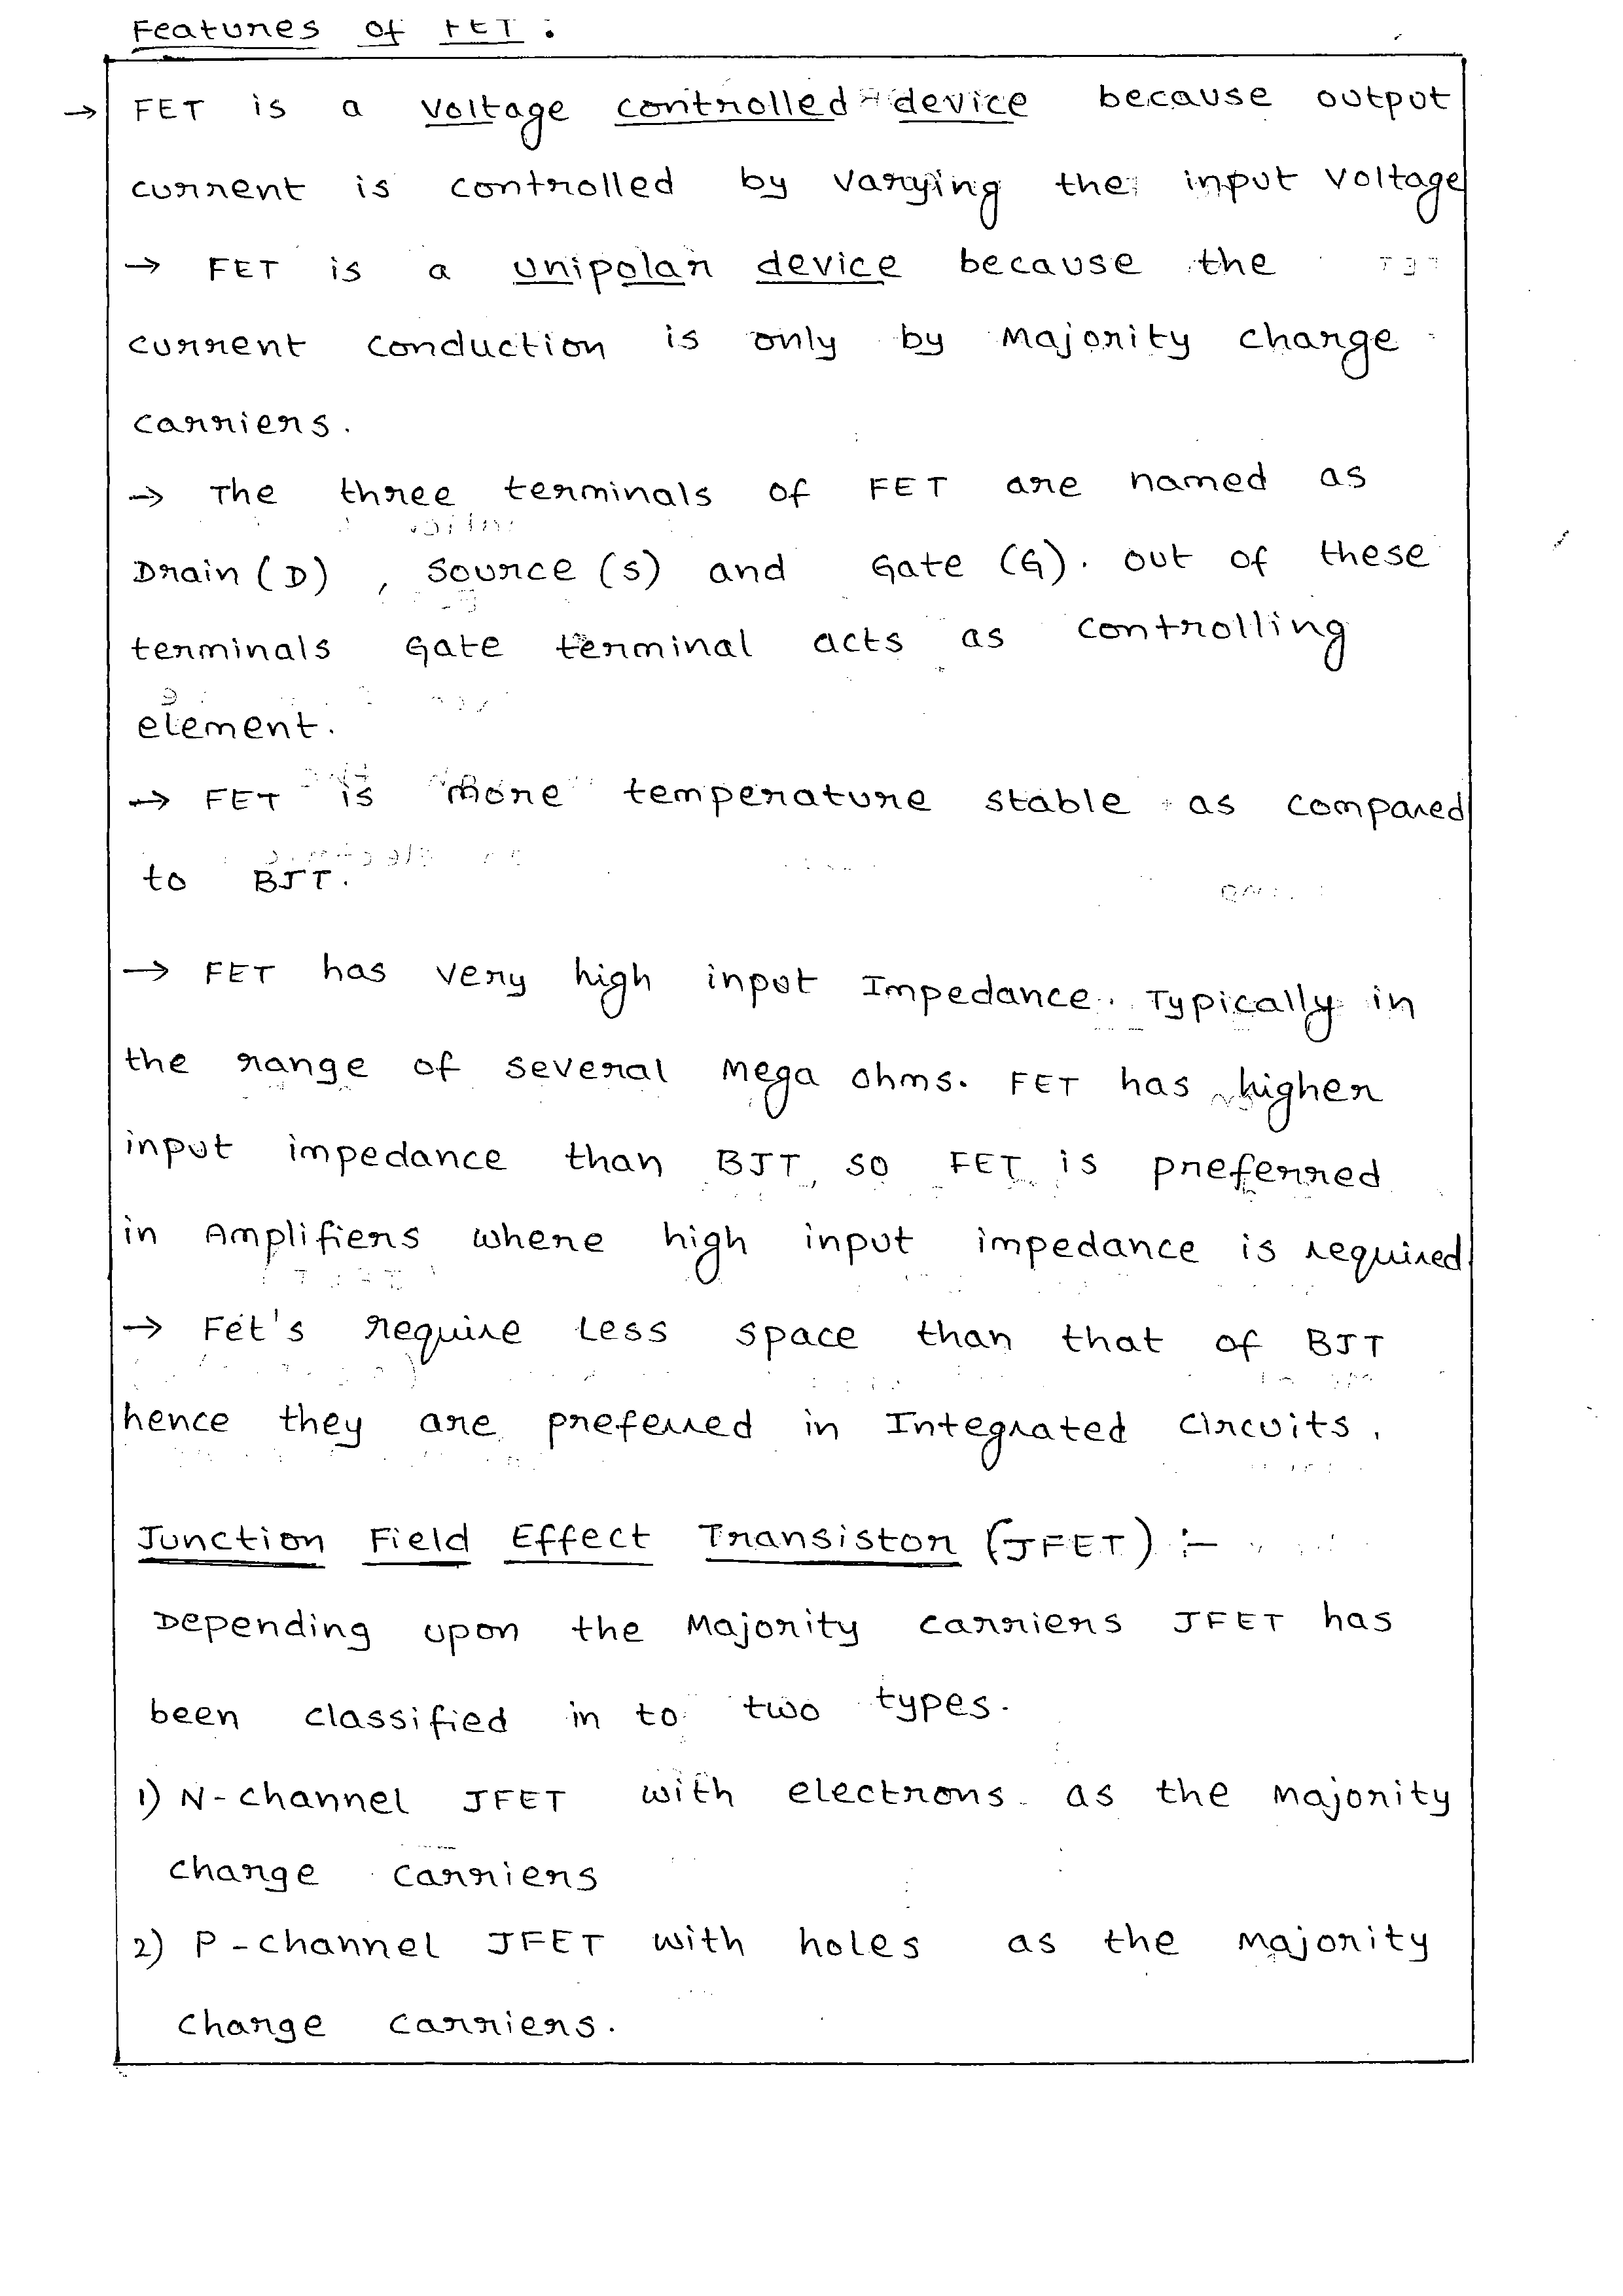 Features of FET :
→ FET is a voltage controlled device because output
current is controlled by varying the input voltage
→ FET is a unipolar device because the
current conduction is only by Majority charge
carriers.
→ The three terminals of FET are named as
Drain (D) , Source (S) and Gate (G). out of these
terminals Gate terminal acts as controlling
element.
→ FET is more temperature stable as compared
to BJT.
→ FET has very high input Impedance. Typically in
the range of several Mega ohms. FET has higher
input impedance than BJT, so FET is preferred
in Amplifiers where high input impedance is required.
→ Fet's require Less space than that of BJT
hence they are preferred in Integrated circuits.
Junction Field Effect Transistor (JFET) :-
Depending upon the Majority carriers JFET has
been classified in to two types.
1) N-channel JFET with electrons as the majority
charge carriers
2) P-channel JFET with holes as the majority
charge carriers.